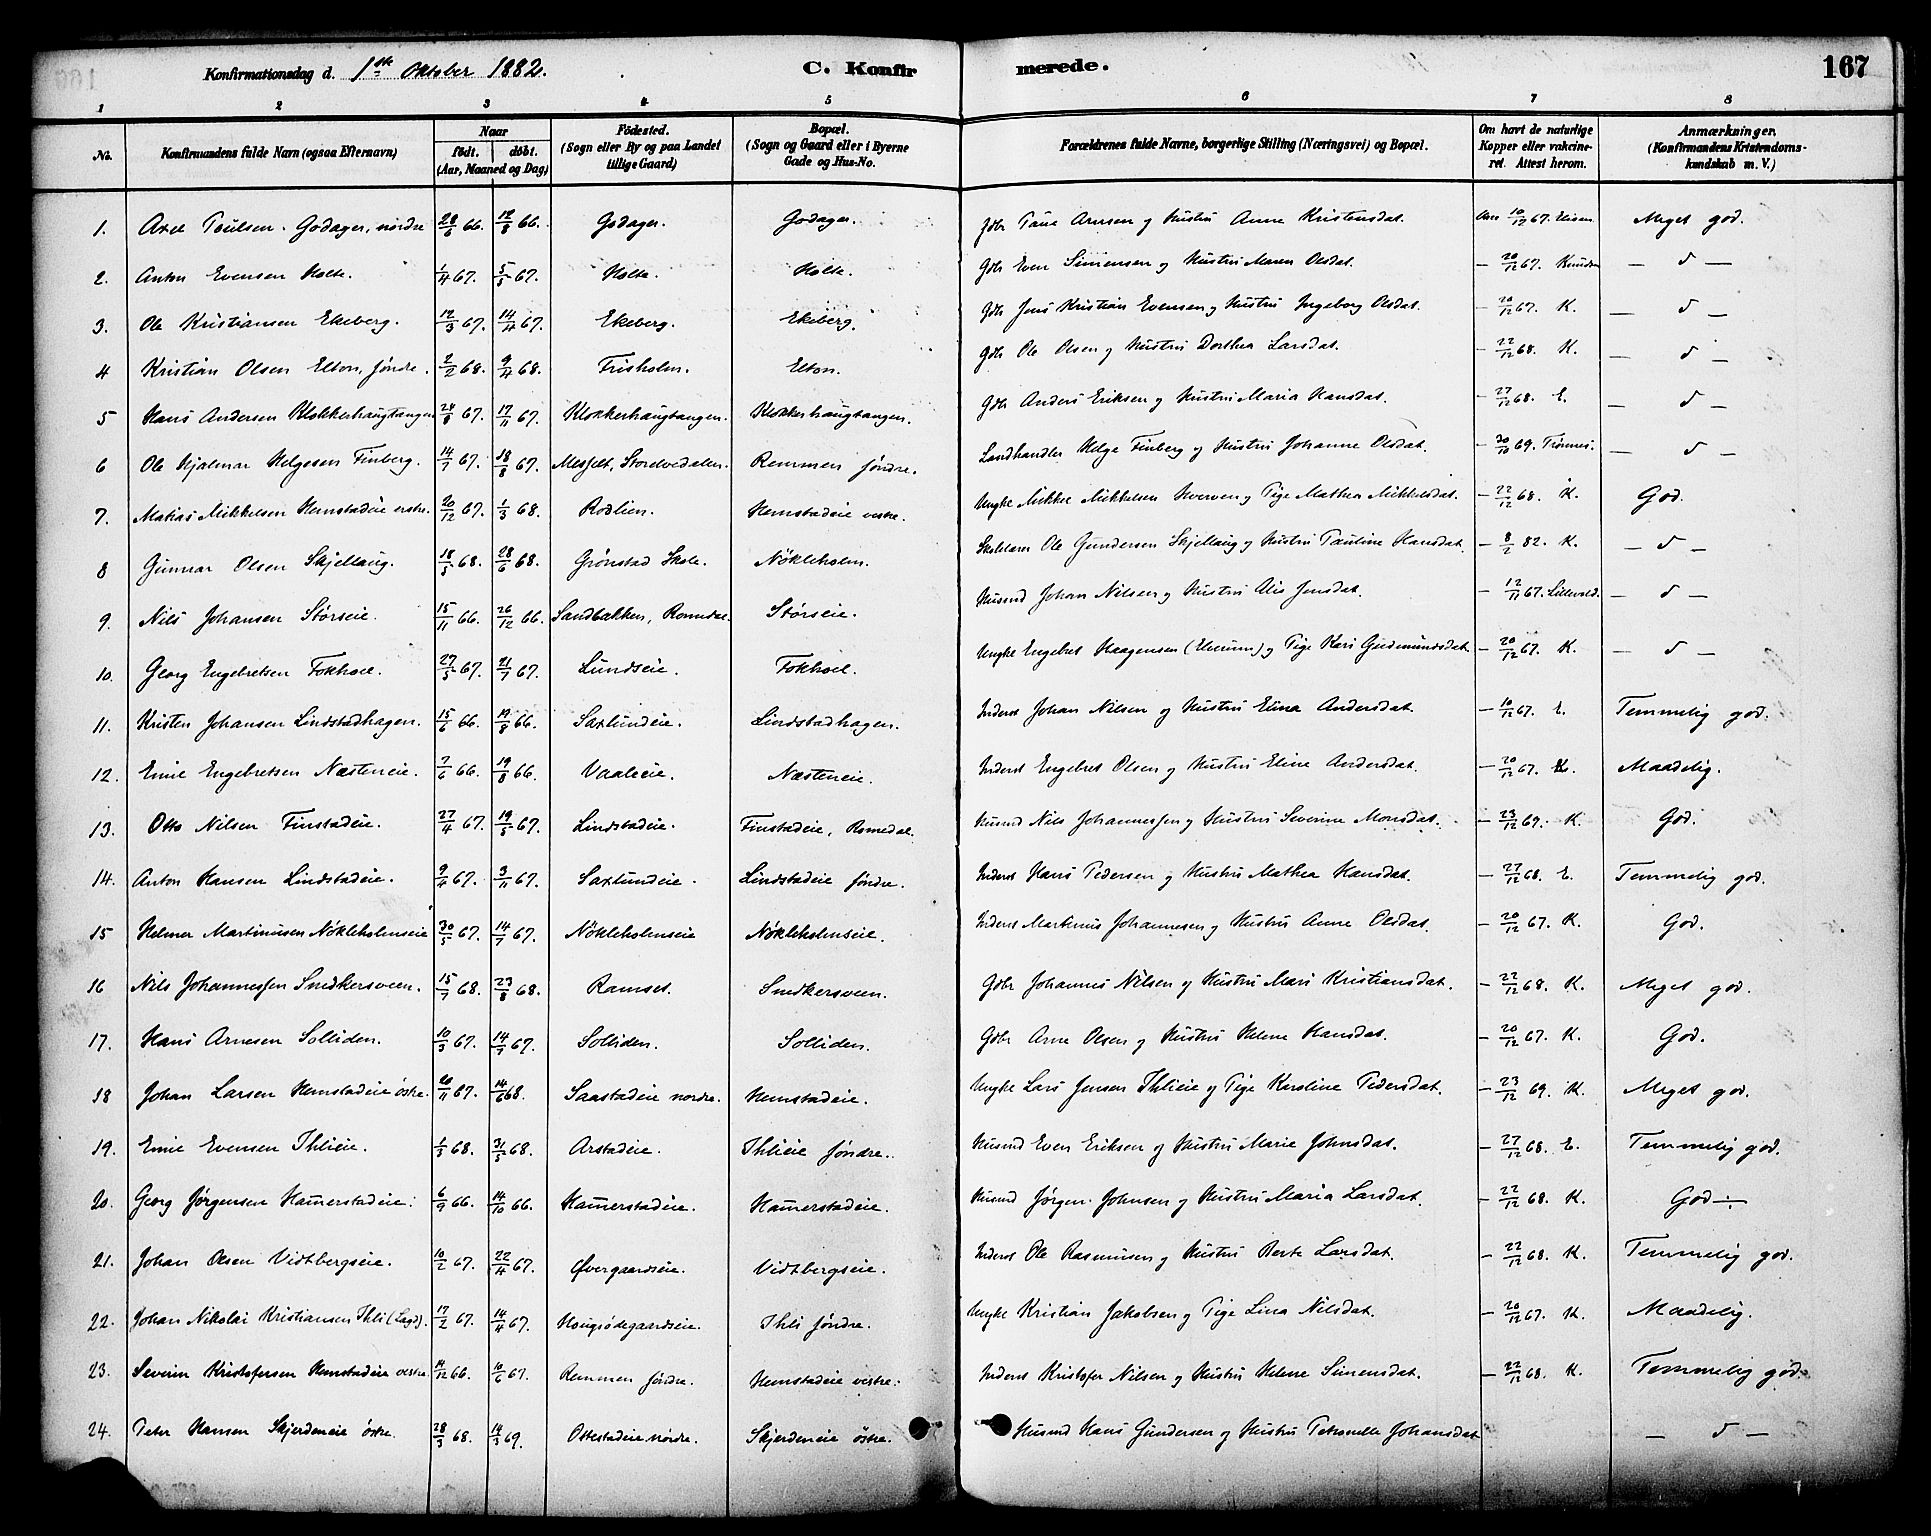 Konfirmationsdag d. 1ste Oktober 1882. C. Konfirmerede. 167
1 2 3 4 5 6 7 8
No. Konfirmandens fulde Navn (ogsaa Efternavn) Naar födt. döbt. (Aar, Maaned og Dag) Födested. (Sogn eller By og paa Landet tillige Gaard) Bopæl. (Sogn og Gaard eller i Byerne Gade og Hus-No. Forældrenes fulde Navne, borgerlige Stilling (Næringsvei) og Bopæl. Om havt de naturlige Kopper eller vakcineret. Attest herom. Anmærkninger. (Konfirmandens Kristendomskundskab m. V.)
1. Axel Paulsen Godager, nordre 28/6 66. 12/8 66. Godager. Godager. Gdbr Paul Arnesen og Hustru Anne Kristensdat. 10/12 67. Meget god.
2. Anton Evensen Holte. 1/4 67. 5/5 67. Holte. Holte. Gdbr Even Simensen og Hustru Maren Olsdat. – 20/12 67. Knudsen — d —
3. Ole Kristiansen Ekeberg. 12/3 67. 14/4 67. Ekeberg. Ekeberg. Gdbr Jens Kristian Evensen og Hustru Ingeborg Olsdat. – 20/12 67. K. — d —
4 Kristian Olsen Elton, söndre. 2/2 68. 9/4 68. Frisholm. Elton. Gdbr Ole Olsen og Hustru Dorthea Larsdat. – 22/12 68. K. — d —
5 Hans Andersen Klokkerhaugtangen 24/8 67. 17/11 67. Klokkerhaugtangen. Klokkerhaugtangen. Gdbr Anders Eriksen og Hustru Maria Hansdat. – 27/12 68. E. — d —
6 Ole Hjalmar Helgesen Finberg. 14/7 67. 18/8 67. Messelt, Storelvedalen. Remmen söndre. Landhandler Helge Finberg og Hustru Johanne Olsdat. – 30/10 69. — d —
7. Matias Mikkelsen Hemstadeie vestre. 20/12 67. 1/3 68. Rödlien. Hemstadeie vestre. Ungke Mikkel Mikkelsen og Pige Mathea Mikkelsdat. – 22/12 68. K. God.
8 Gunnar Olsen Skjellaug. 18/5 68. 28/6 68. Grönstad Skole. Nökleholm. Skolelærer Ole Gundersen Skjellaug og Hustru Pauline Hansdat. – 8/2 82. K. — d —
9. Nils Johansen Störseie. 15/11 66. 26/12 66. Sandbakken, Romedal. Störseie. Husmd Johan Nilsen og Hustru Alis Jensdat. – 12/11 67. — d —
10. Georg Engebretsen Fokhoel. 27/5 67. 21/7 67. Lundseie. Fokhoel. Ungke Engebret Haagensen og Pige Kari Gudmundsdat – 20/12 67. K. — d —
11. Kristen Johansen Lindstadhagen. 15/6 66. 19/8 66. Saxlundeie. Lindstadhagen. Inderst Johan Nilsen og Hustru Elina Andersdat. – 10/12 67. E. Temmelig god.
12. Emil Engebretsen Næsteneie. 7/6 66. 19/8 66. Vaaleie. Næsteneie. Inderst Engebret Olsen og Hustru Eline Andersdat. – 20/12 67. K. Maadelig.
13. Otto Nilsen Finstadeie. 27/4 67. 19/5 67. Lindstadeie. Finstadeie, Romedal. Husmd Nils Johannessen og Hustru Severine Monsdat. – 23/12 69. K. God.
14. Anton Hansen Lindstadeie. 9/4 67. 3/11 67. Saxlundeie. Lindstadeie söndre. Inderst Hans Pedersen og Hustru Mathea Hansdat. – 27/12 68. E. Temmelig god.
15 Helmer Martinusen Nökleholmseie 30/5 67. 14/7 67. Nökleholmseie Nökleholmseie. Inderst Martinus Johannesen og Hustru Anne Olsdat. – 20/12 67. K. God.
16 Nils Johannessen Snedkersveen. 15/7 68. 23/8 68. Ramset. Snedkersveen. Gdbr Johannes Nilsen og Hustru Mari Kristiansdat. – 22/12 68. K. Meget god.
17. Hans Arnesen Solliden. 10/3 67. 14/7 67. Solliden. Solliden. Gdbr Arne Olsen og Hustru Helene Hansdat. – 20/12 67. K. God.
18 Johan Larsen Hemstadeie östre. 20/11 67. 14/6 68. Saastadeie nordre. Hemstadeie. Ungke Lars Jensen Ihlieie og Pige Karoline Pedersdat. – 23/12 69. K. Meget god.
19. Emil Evensen Ihlieie. 1/3 68. 31/5 68. Arstadeie. Ihlieie söndre. Husmd Even Eriksen og Hustru Marie Johnsdat. – 27/12 68. E. Temmelig god.
20. Georg Jörgensen Hamerstadeie. 6/9 66. 14/10 66. Hamerstadeie. Hamerstadeie. Husmd Jörgen Johnsen og Hustru Maria Larsdat. – 22/12 68. K. God
21. Johan Olsen Vidtbergseie. 10/2 67. 22/4 67. Övergaardseie. Vidtbergseie. Inderst Ole Rasmusen og Hustru Berte Larsdat. – 22/12 68. K. Temmelig god.
22. Johan Nikolai Kristiansen Ihli (Lagd). 17/2 67. 14/4 67. Ihli söndre. Ungke Kristian Jakobsen og Pige Lina Nilsdat. – 20/12 67. K. Maadelig.
23. Severin Kristofersen Hemstadeie vestre. 14/12 66. 10/6 67. Remmen söndre. Hemstadeie vestre. Inderst Kristofer Nilsen og Hustru Helene Simensdat. – 22/12 68. K. Temmelig god.
24. Peter Hansen Skjerdeneie östre. 28/3 68. 14/3 69. Ottestadeie nordre. Skjerdeneie östre. Husmd Hans Gundersen og Hustru Petronelle Johansdat — d —